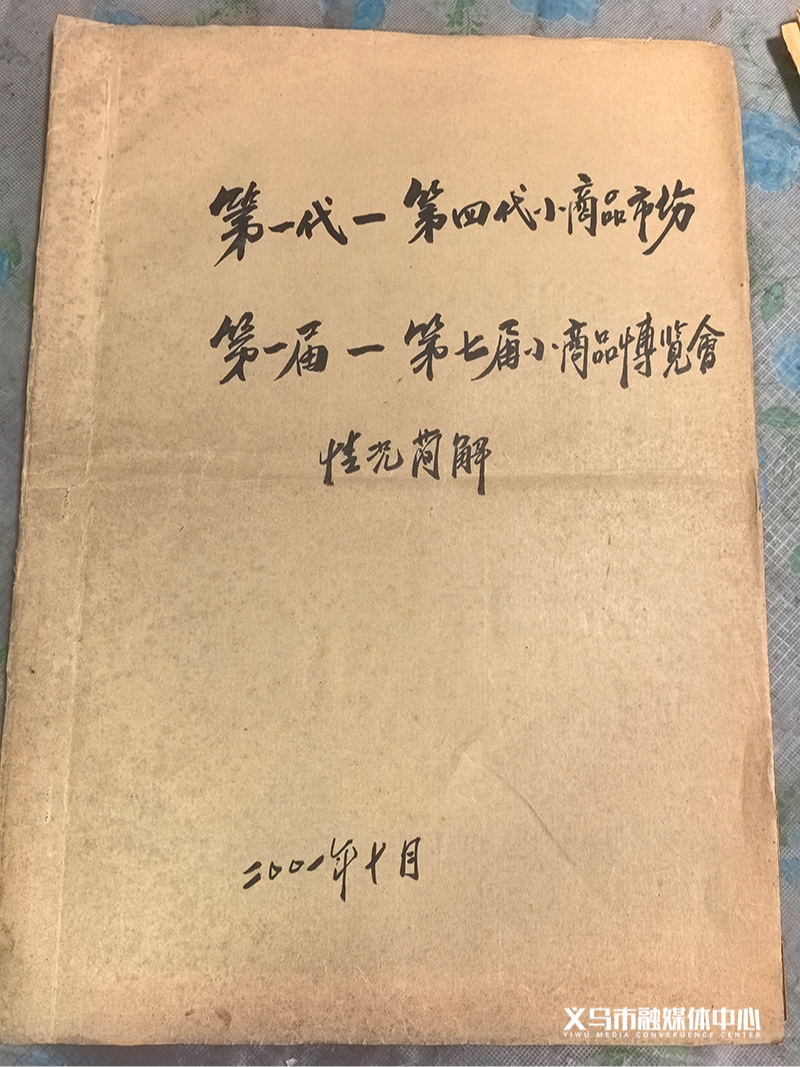 第一代一第四代小商品市场
第一届一第七届小商品博览會
情况简解
二00一年十月
义乌市融媒体中心
YIWU MEDIA CONVERGENCE CENTER